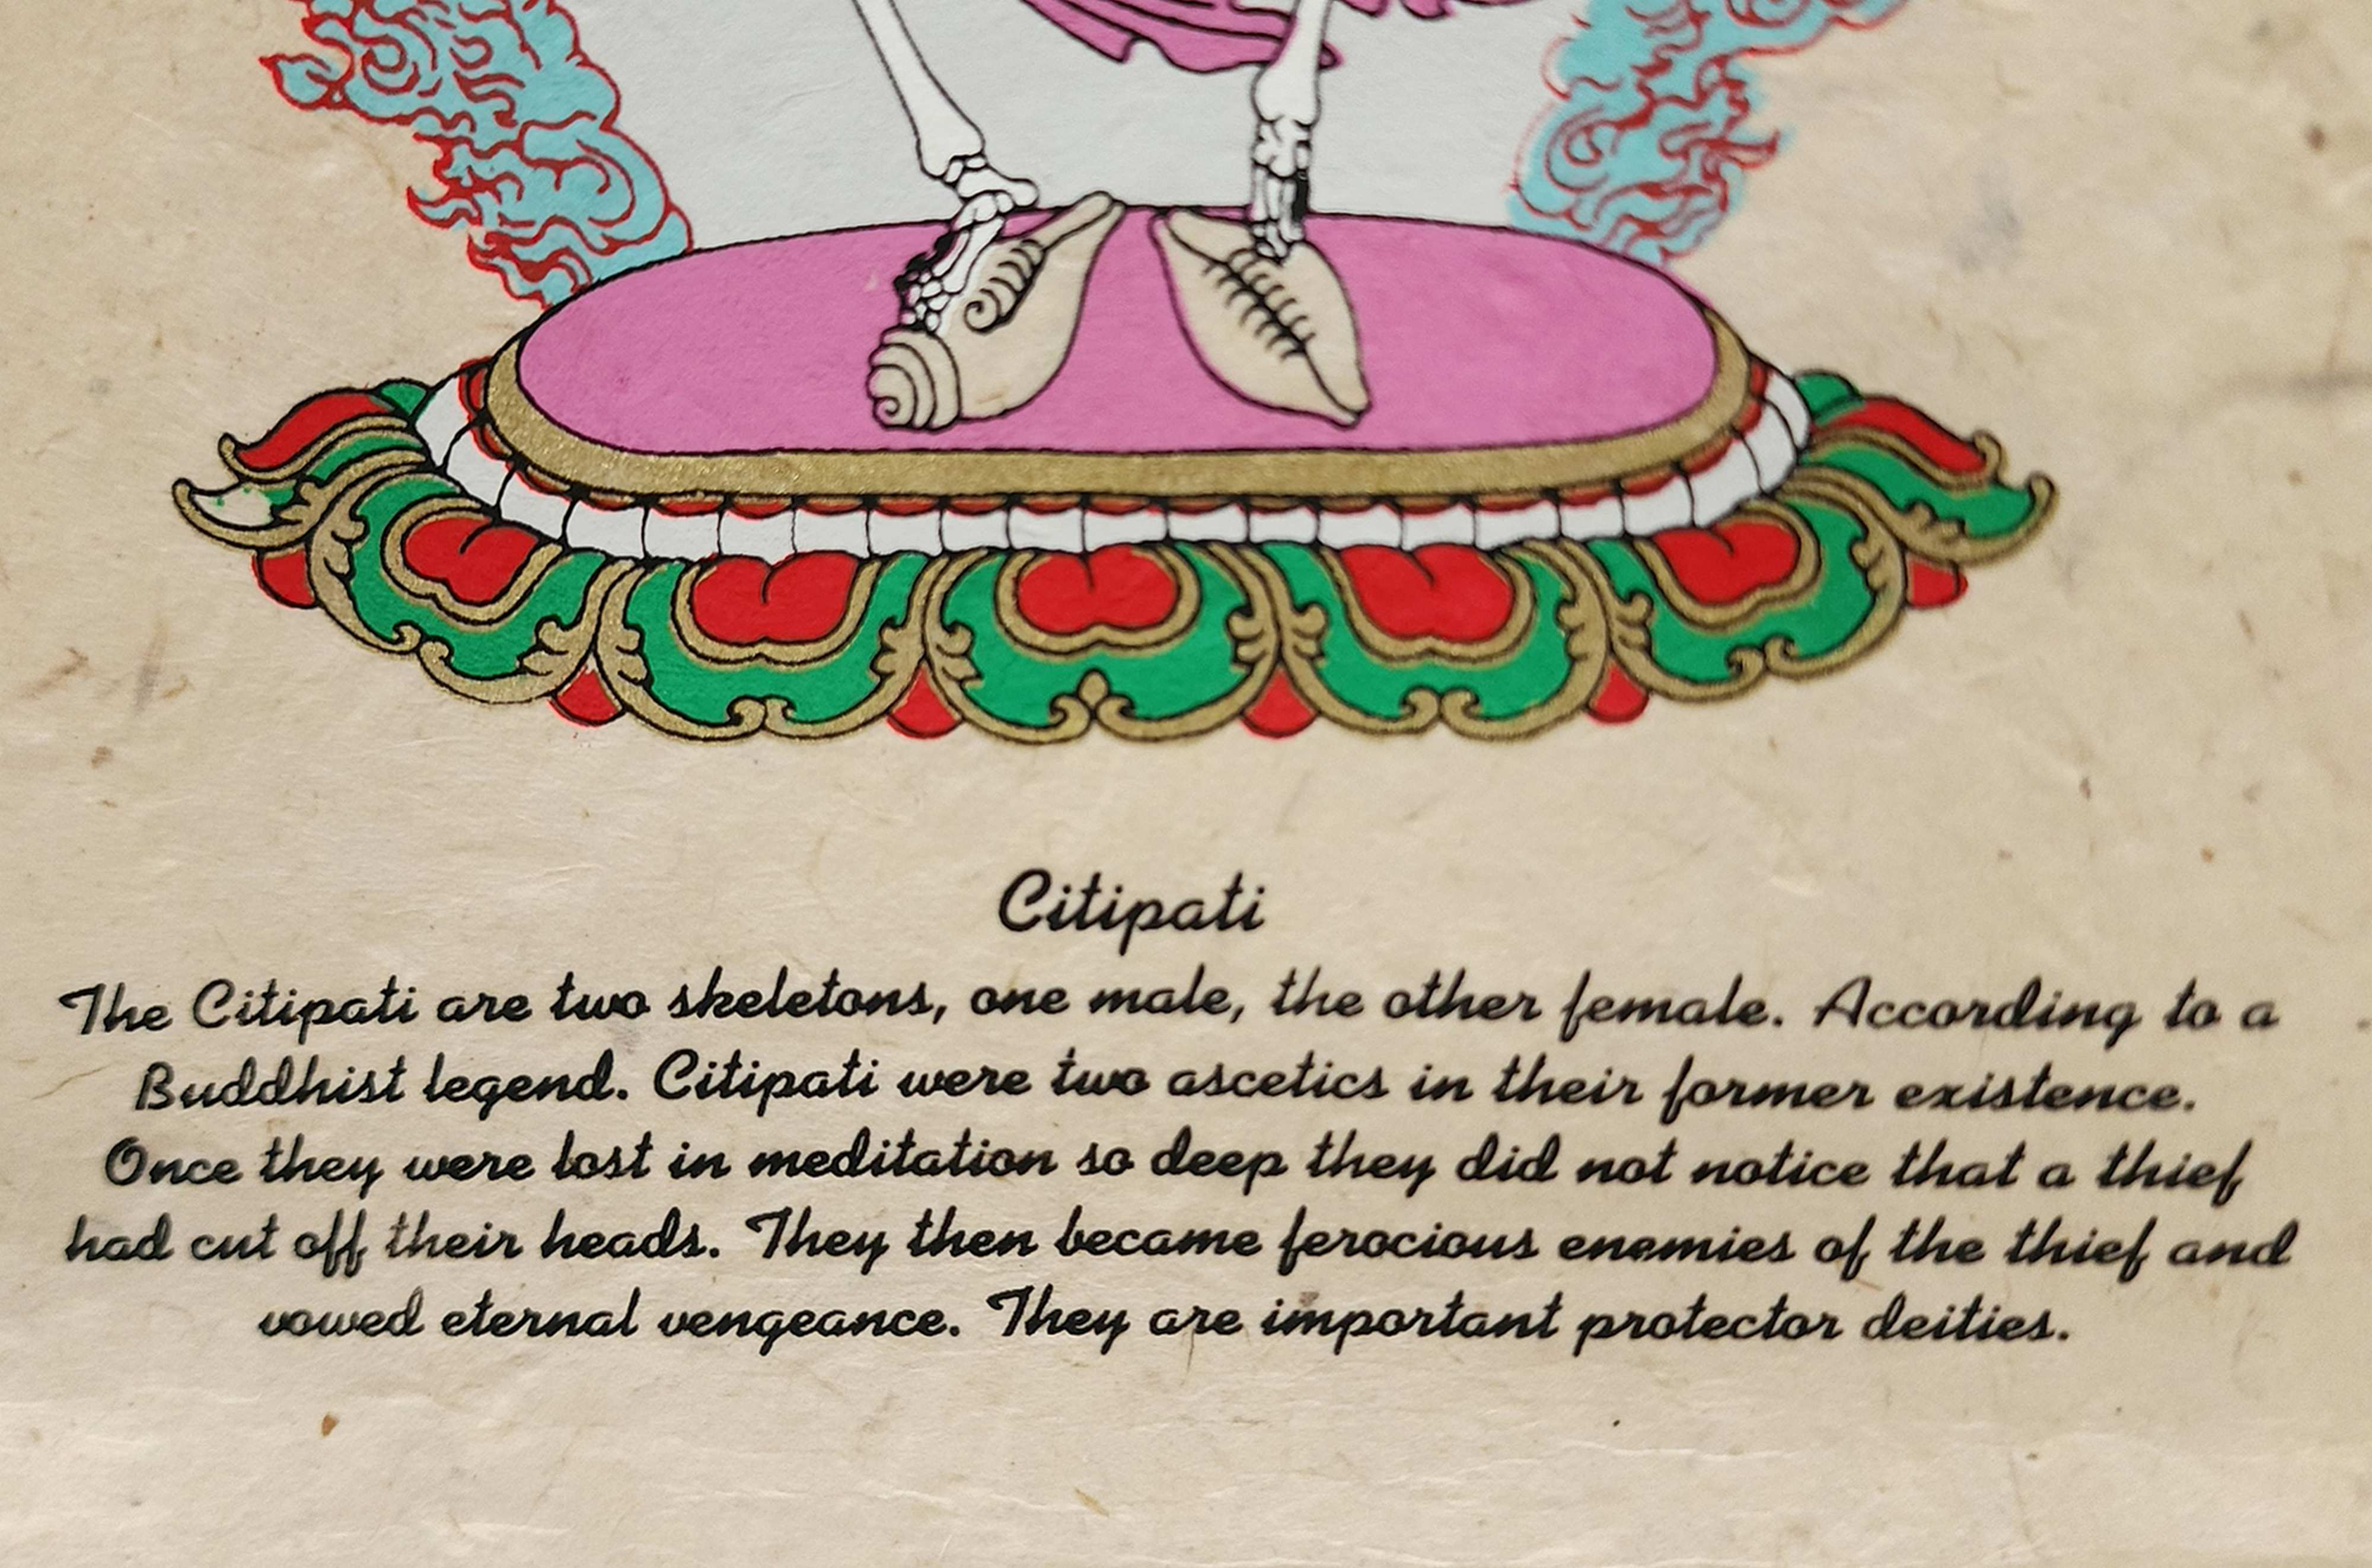 Citipati
The Citipati are two skeletons, one male, the other female. According to a
Buddhist legend. Citipati were two ascetics in their former existence.
Once they were lost in meditation so deep they did not notice that a thief
had cut off their heads. They then became ferocious enemies of the thief and
vowed eternal vengeance. They are important protector deities.